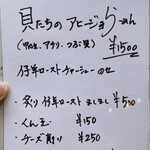 貝たちのアヒージョらーめん
(ムール、アサリ、つぶ貝)
¥1500
仔羊ローストチャーシューのせ
・炙り仔羊ロースト ましまし ¥500
・くん玉 ¥150
・チーズ削り ¥250